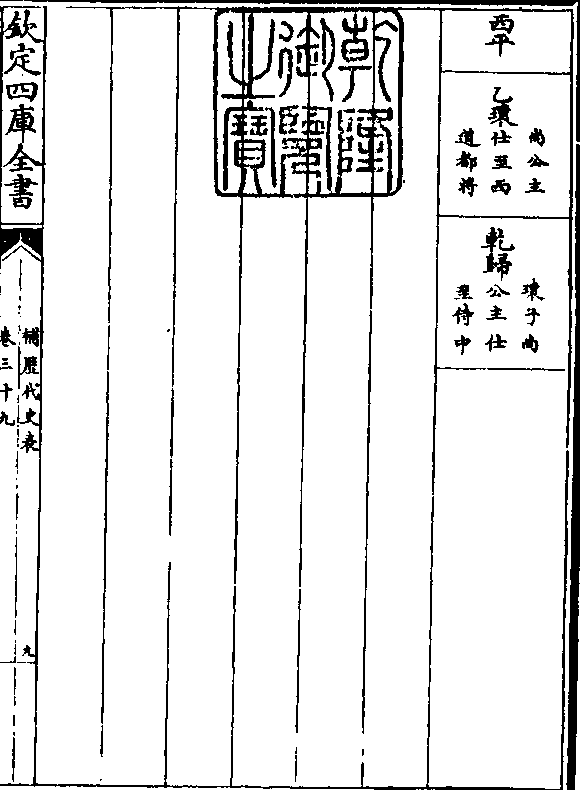 西平
乙瓌
尚公主
仕至西
道都將
乾歸
瓌子尚
公主仕
至侍中
乾隆
御覽
之寶
欽定四庫全書
補歷代史表
卷三十九
九